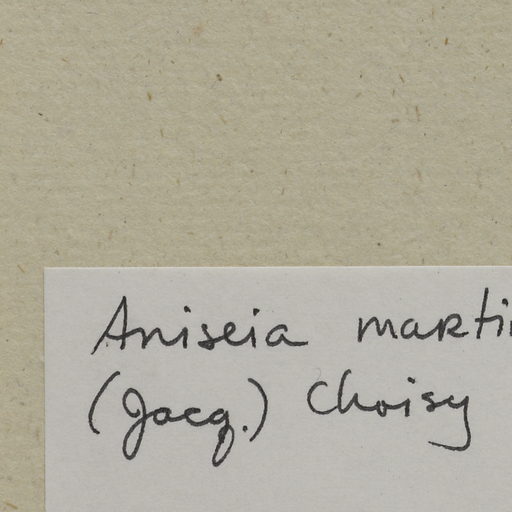 Aniseia marti
(Jacq.) Choisy